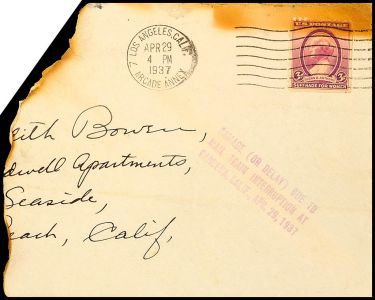 LOS ANGELES, CALIF.
7
APR 29
4 PM
1937
ARCADE ANNEX
U.S. POSTAGE
3¢ 3¢
SUFFRAGE FOR WOMEN
eith Bowen,
dwell Apartments,
Seaside,
each, Calif.
DAMAGE (OR DELAY) DUE TO
MAIL TRAIN INTERRUPTION AT
CALIF. APR. 29, 1937